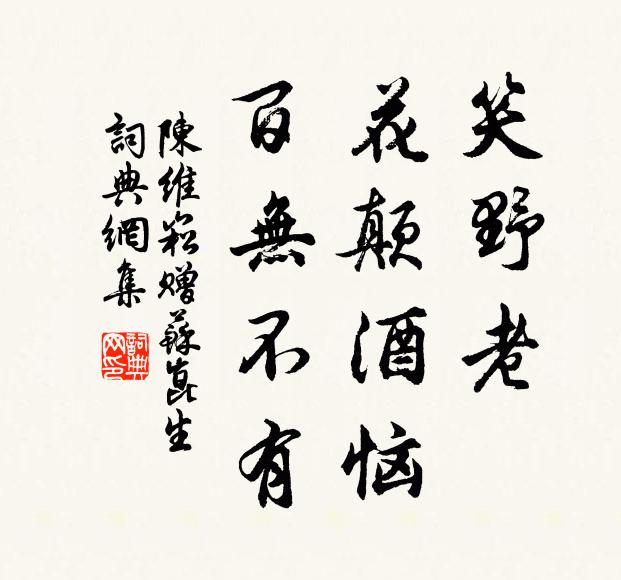 笑野老
花颠酒恼
百無不有
陳維崧贈蘇崑生
詞典網集
詞典网印